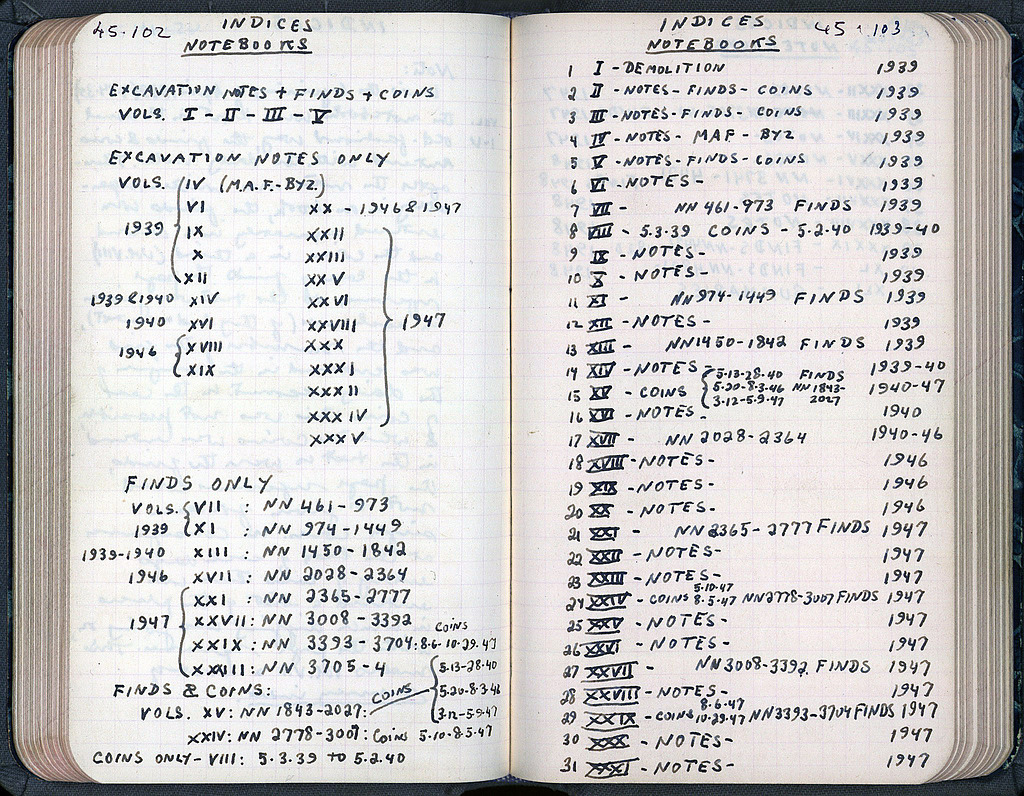 45.102
INDICES
NOTEBOOKS
EXCAVATION NOTES + FINDS + COINS
VOLS. I - II - III - V
EXCAVATION NOTES ONLY
VOLS. IV (M.A.F.-BYZ.)
VI XX - 1946 & 1947
1939 IX XXII
X XXIII
XII XXV
1939 & 1940 XIV XXVI
1940 XVI XXVIII 1947
1946 XVIII XXX
XIX XXXI
XXXII
XXXIV
XXXV
FINDS ONLY
VOLS. VII : NN 461 - 973
1939 XI : NN 974 - 1449
1939-1940 XIII : NN 1450 - 1842
1946 XVII : NN 2028 - 2364
XXI : NN 2365 - 2777
1947 XXVII : NN 3008 - 3392
XXIX : NN 3393 - 3704 : COINS 8-6-10-29.47
XXXIII : NN 3705 - 4
FINDS & COINS:
VOLS. XV : NN 1843-2027 : COINS 5-13-28.40
5-20-8-3-46
3-12-5-9-47
XXIV : NN 2778 - 3007 : COINS 5-10-8-5-47
COINS ONLY - VIII : 5.3.39 TO 5.2.40
INDICES 45.103
NOTEBOOKS
1 I - DEMOLITION 1939
2 II - NOTES - FINDS - COINS 1939
3 III - NOTES - FINDS - COINS 1939
4 IV - NOTES - M.A.F. - BYZ 1939
5 V - NOTES - FINDS - COINS 1939
6 VI - NOTES - 1939
7 VII - NN 461-973 FINDS 1939
8 VIII - 5.3.39 COINS - 5.2.40 1939-40
9 IX - NOTES - 1939
10 X - NOTES - 1939
11 XI - NN 974-1449 FINDS 1939
12 XII - NOTES - 1939
13 XIII - NN 1450-1842 FINDS 1939
14 XIV - NOTES 1939-40
15 XV - COINS 5-13-28.40 FINDS 1940-47
5-20-8-3-46 NN 1843-
3-12-5-9-47 2027
16 XVI - NOTES - 1940
17 XVII - NN 2028-2364 1940-46
18 XVIII - NOTES - 1946
19 XIX - NOTES 1946
20 XX - NOTES - 1946
21 XXI - NN 2365-2777 FINDS 1947
22 XXII - NOTES - 1947
23 XXIII - NOTES - 1947
24 XXIV - COINS 5.10.47 8.5.47 NN 2778-3007 FINDS 1947
25 XXV - NOTES - 1947
26 XXVI - NOTES - 1947
27 XXVII - NN 3008-3392 FINDS 1947
28 XXVIII - NOTES - 1947
29 XXIX - COINS 8.6.47 10-29.47 NN 3393-3704 FINDS 1947
30 XXX - NOTES - 1947
31 XXXI - NOTES - 1947